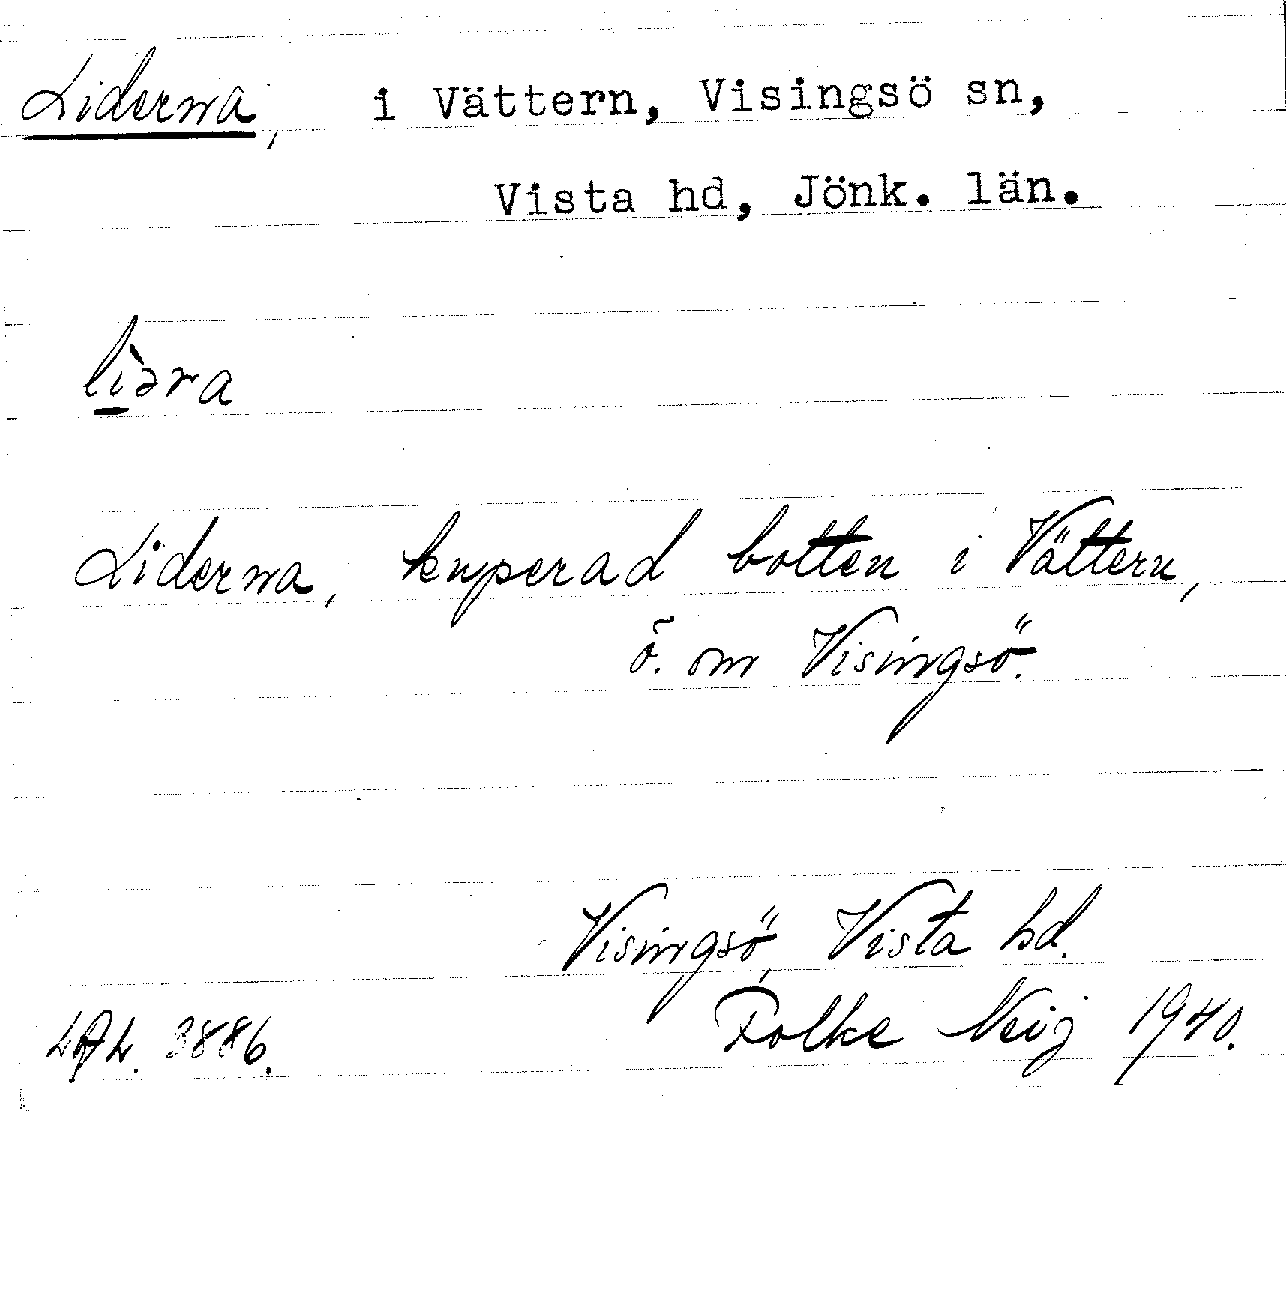 Liderna, i Vättern, Visingsö sn,
Vista hd, Jönk. län.
lì̠əra
Liderna, kuperad botten i Vättern,
ö. om Visingsö.
Visingsö, Vista hd.
3886. Folke Neij 1940.